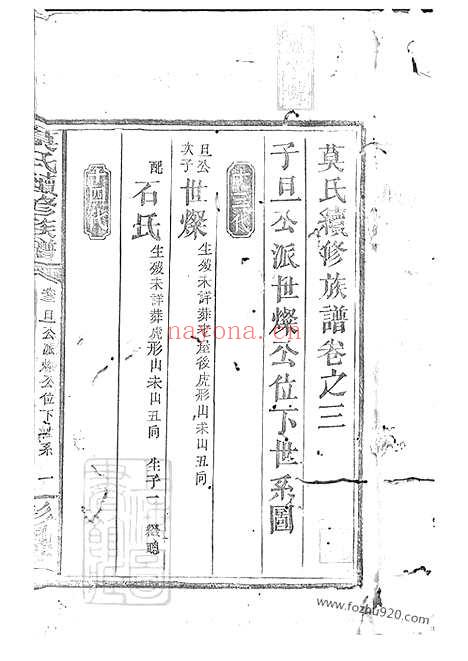 莫氏續修族譜卷之三
子旦一公派世燦公位下世系圖
旦公次子
世燦
生歿未詳葬老屋後虎形山未山丑向
配
石氏
生歿未詳葬虎形山未山丑向 生子一 聰
莫氏續修族譜
旦一公派燦公位下世系 一
nayona.cn
www.fozhu920.com